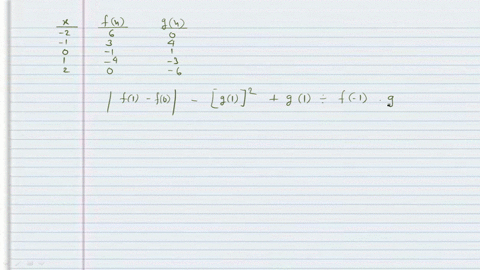 x f(x) g(x)
-2 6 0
-1 3 4
0 -1 1
1 -4 -3
2 0 -6
| f(1) - f(0) | - [g(1)]² + g(1) ÷ f(-1) · g